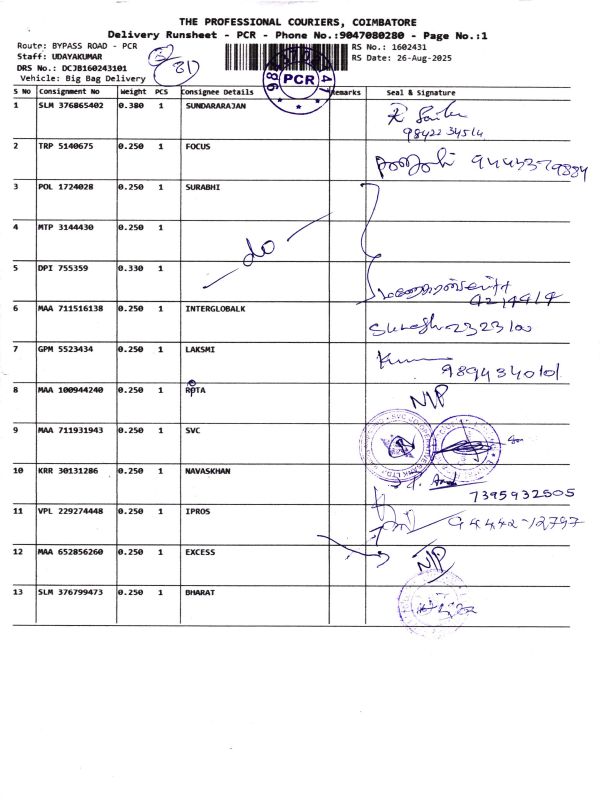 THE PROFESSIONAL COURIERS, COIMBATORE
Delivery Runsheet - PCR - Phone No.:9047080280 - Page No.:1
Route: BYPASS ROAD - PCR RS No.: 1602431
Staff: UDAYAKUMAR RS Date: 26-Aug-2025
DRS No.: DCJB160243101
Vehicle: Big Bag Delivery
31
PCR
S No Consignment No Weight PCS Consignee Details Remarks Seal & Signature
1 SLM 376865402 0.380 1 SUNDARARAJAN
9842234514
2 TRP 5140675 0.250 1 FOCUS 9444379884
3 POL 1724028 0.250 1 SURABHI
4 MTP 3144430 0.250 1
- do -
5 DPI 755359 0.330 1
6 MAA 711516138 0.250 1 INTERGLOBALK Suresh 2323100
7 GPM 5523434 0.250 1 LAKSMI
9894340101
8 MAA 100944240 0.250 1 ROTA N/P
9 MAA 711931943 0.250 1 SVC
10 KRR 30131286 0.250 1 NAVASKHAN
7395932505
11 VPL 229274448 0.250 1 IPROS 94442-12797
12 MAA 652856260 0.250 1 EXCESS N/P
13 SLM 376799473 0.250 1 BHARAT